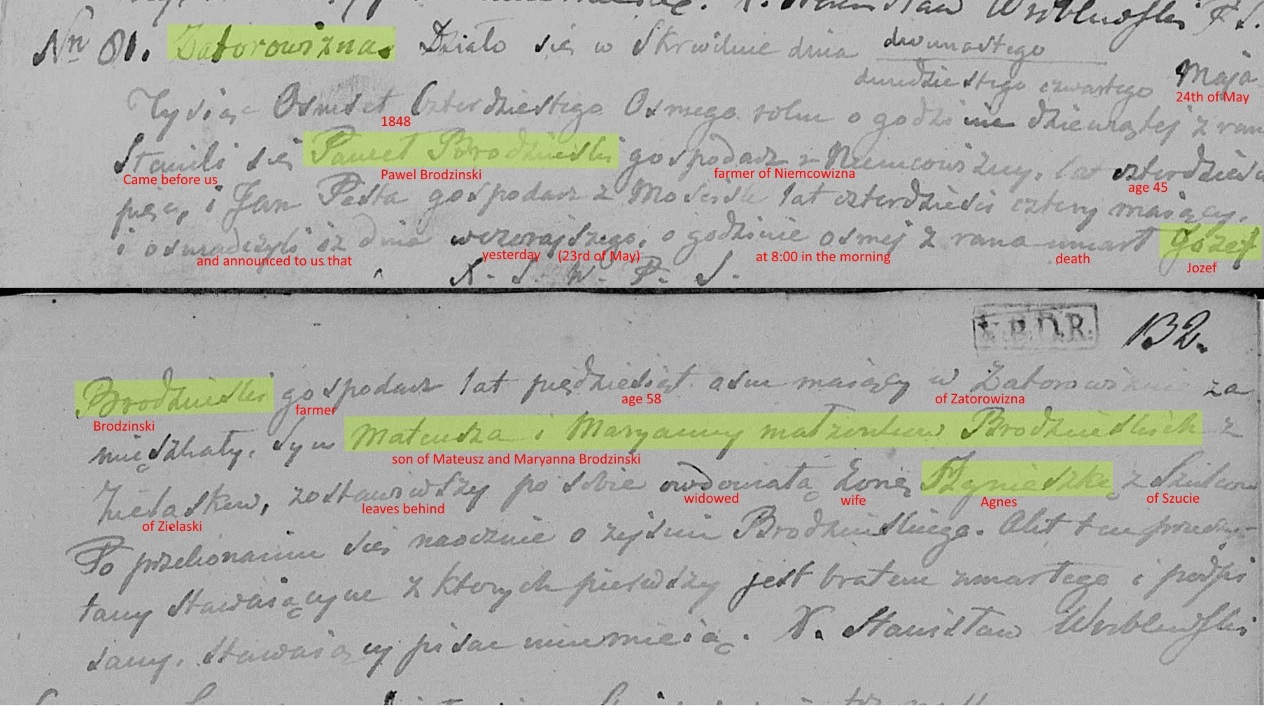 X. Stanisław Wróblewski P. S.
Nn 81. Zatorowizna. Działo się w Skrwilnie dnia dwunastego
dwudziestego czwartego Maja
24th of May
Tysiąc Osmset Czterdziestego Osmego roku o godzinie dziewiątej z rana
1848
Stawili się Paweł Brodziński gospodarz z Niemcowizny, lat czterdzieści
Came before us
Pawel Brodzinski
farmer of Niemcowizna
age 45
pięć, i Jan Pesta gospodarz z Mościsk lat czterdzieści cztery mający,
i oswiadczyli iż dnia wczorajszego, o godzinie osmej z rana umarł Jozef
and announced to us that
yesterday (23rd of May)
at 8:00 in the morning
death
Jozef
X. S. W. P. S.
X.B.D.R. 132.
Brodziński gospodarz lat piędziesiąt osm mający w Zatorowiznie za
Brodzinski
farmer
age 58
of Zatorowizna
mięszkały, syn Mateusza i Maryanny małżonków Brodzinskich z
son of Mateusz and Maryanna Brodzinski
Zielasków, zostawiwszy po sobie owdowiałą żonę Agnieszkę z
of Zielaski
leaves behind
widowed
wife
Agnes
of Szucie
Po przekonaniu się naocznie o zejściu Brodzinskiego. Akt ten
stawaiącym z ktorych pierwszy jest bratem zmarłego i podpi
sany, stawaiący pisac nieumieią. X. Stanisław Wróblewski